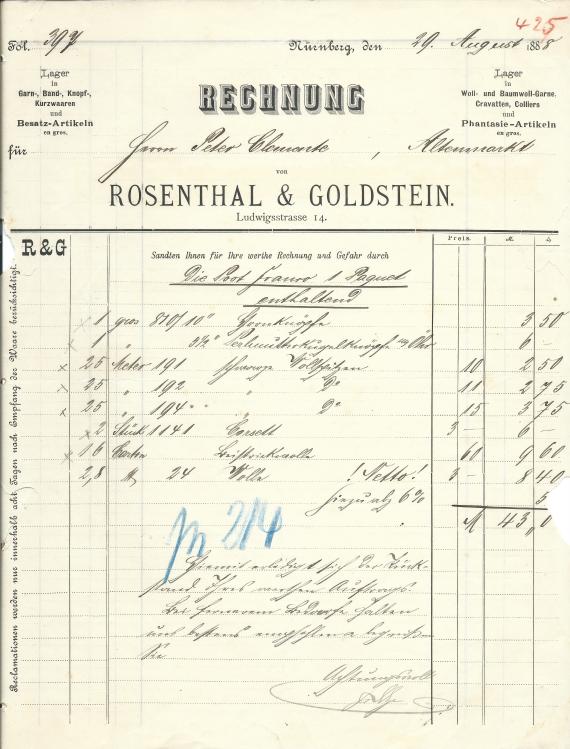 425
Fol. 397
Nürnberg, den 29. August 1888
Lager
in
Garn-, Band-, Knopf-,
Kurzwaaren
und
Besatz-Artikeln
en gros.
RECHNUNG
Lager
in
Woll- und Baumwoll-Garne.
Cravatten, Colliers
und
Phantasie-Artikeln
en gros.
für Herrn Peter Clemente, Altenmarkt
von
ROSENTHAL & GOLDSTEIN.
Ludwigsstrasse 14.
R & G
Preis. M. ₰
Sandten Ihnen für Ihre werthe Rechnung und Gefahr durch
Die Post franco 1 Paquet
enthaltend
1 gros 810/10" Hornknöpfe 3 50
1 " Perlmutterkugelknöpfe Öhr 6 —
25 Meter 191 schwarze Wollspitzen 10 2 50
25 " 192 " Do 11 2 75
25 " 194 " Do 15 3 75
2 Stück 1141 Corsett 3 — 6 —
16 60 9 60
2,8 24 Wolle ! Netto ! 3 8 40
hiezu 6% 5
M 43 0
214
Hiemit erledigt sich der Rück-
stand Ihres werthen Auftrags.
Bei fernerem Bedarfe halten
uns bestens empfohlen
Sie
Achtungsvoll
Reclamationen werden nur innerhalb acht Tagen nach Empfang der Waare berücksichtigt.